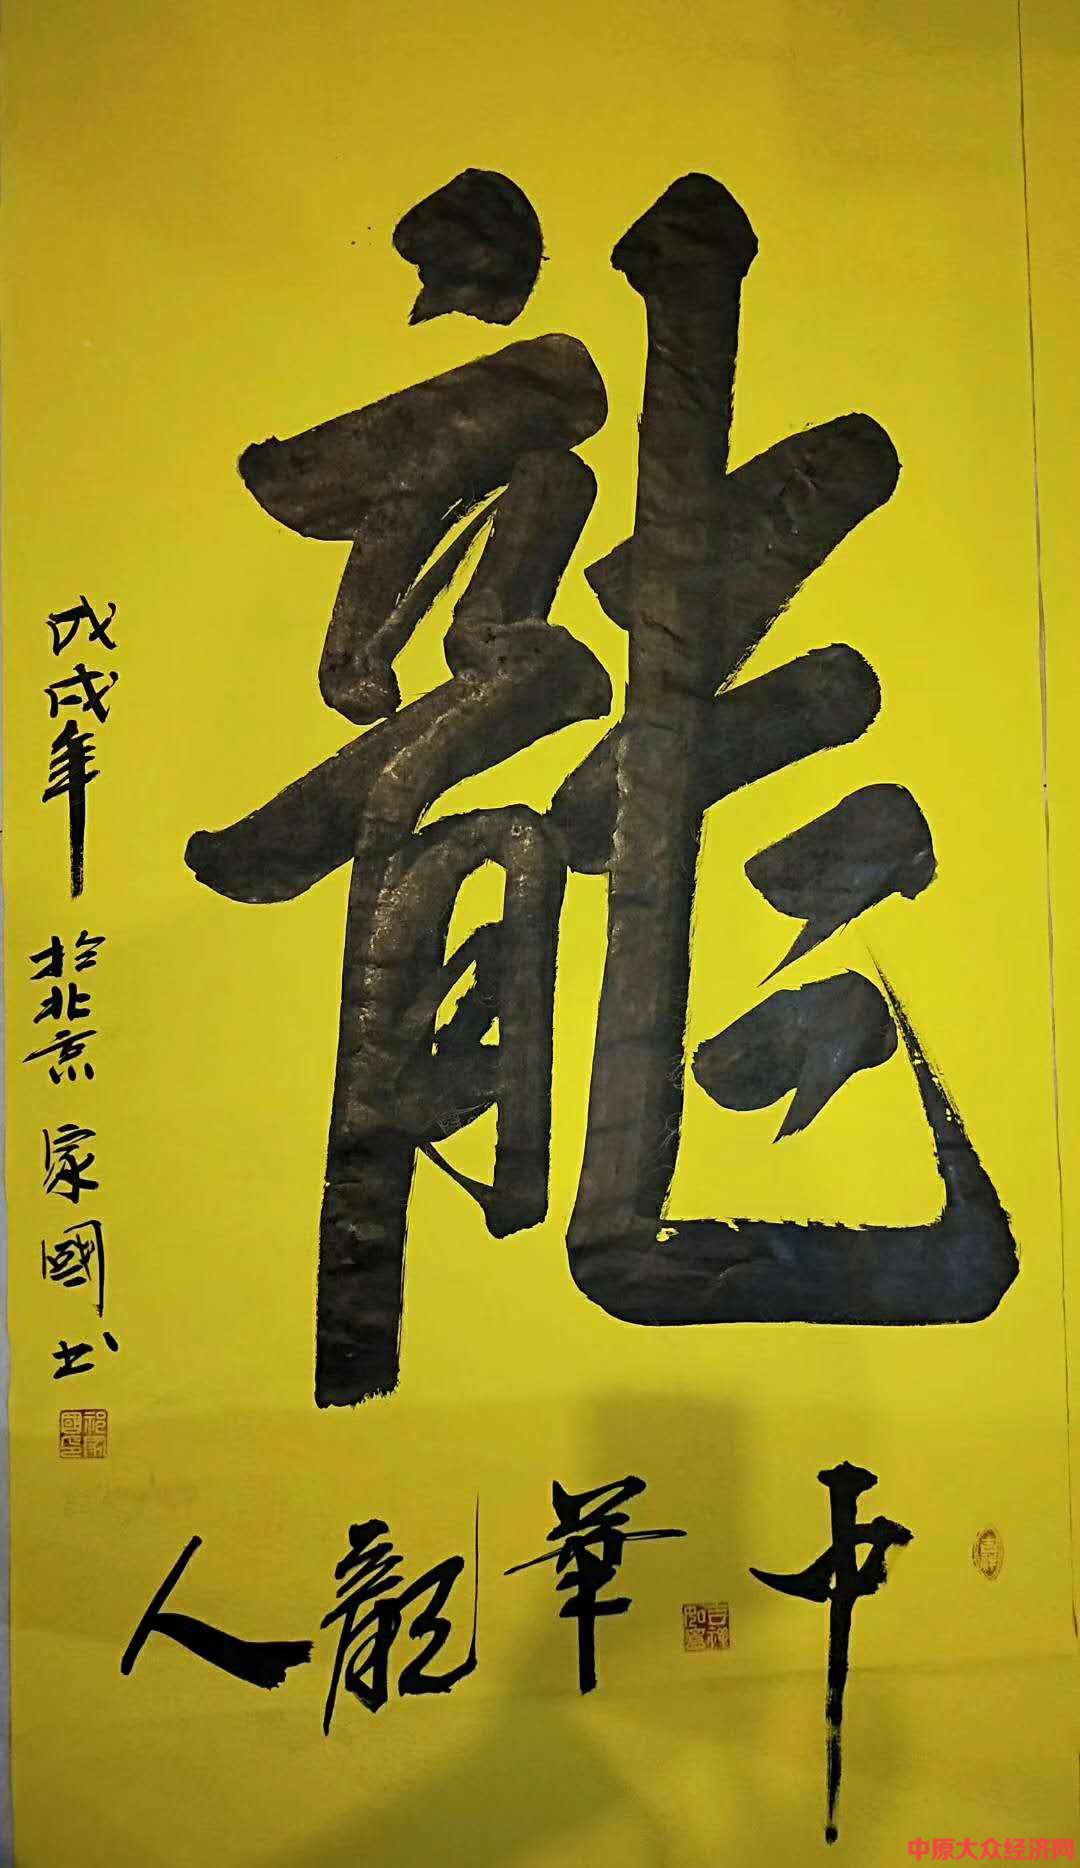 龍
中華龍人
戊戌年於北京家國书
吉祥如意
中原大众经济网